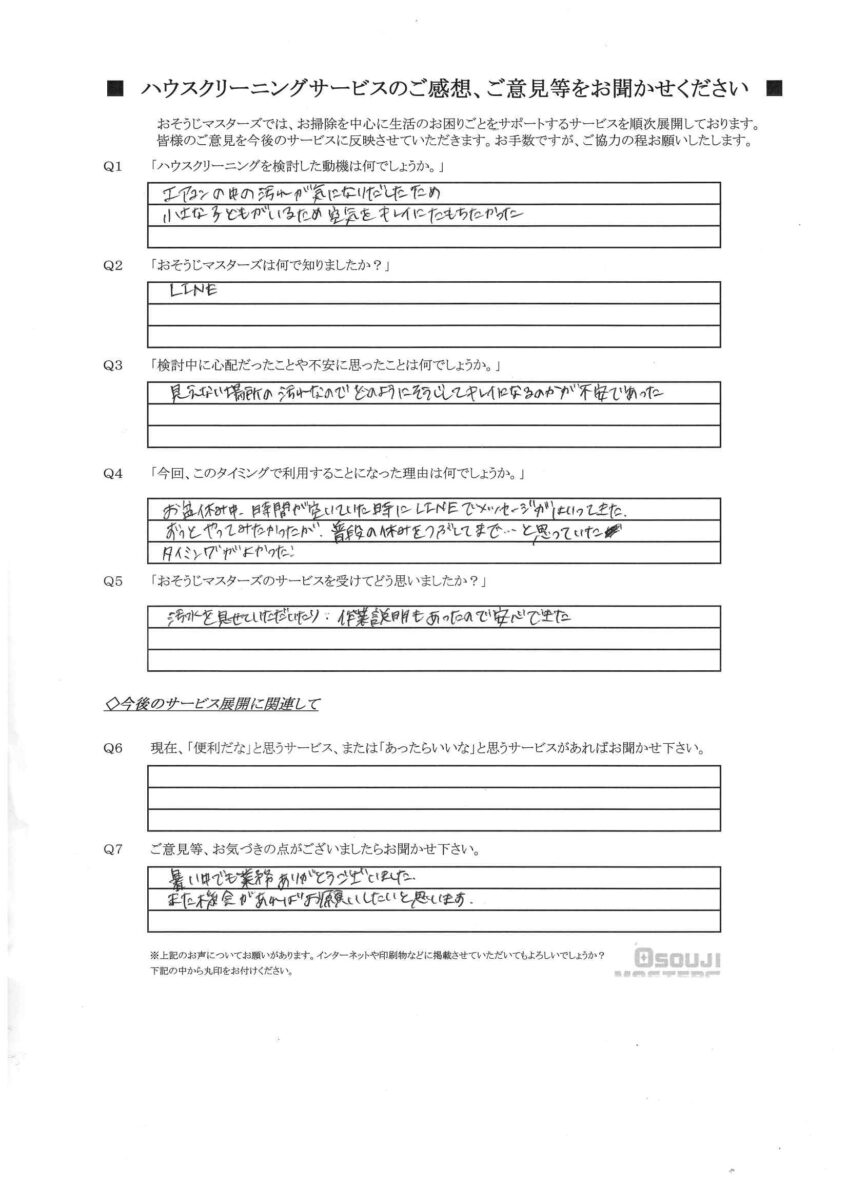 ■ ハウスクリーニングサービスのご感想、ご意見等をお聞かせください ■
おそうじマスターズでは、お掃除を中心に生活のお困りごとをサポートするサービスを順次展開しております。
皆様のご意見を今後のサービスに反映させていただきます。お手数ですが、ご協力の程お願いしたします。
Q1 「ハウスクリーニングを検討した動機は何でしょうか。」
エアコンの中の汚れが気になりだしたため
小さな子どもがいるため空気をキレイにたもちたかった
Q2 「おそうじマスターズは何で知りましたか?」
LINE
Q3 「検討中に心配だったことや不安に思ったことは何でしょうか。」
見えない場所の汚れなのでどのようにそうじしてキレイになるのかが不安であった
Q4 「今回、このタイミングで利用することになった理由は何でしょうか。」
お盆休み中、時間が空いていた時にLINEでメッセージがはいってきた。
ずっとやってみたかったが、普段の休みをつぶしてまで…と思っていた
タイミングがよかった!
Q5 「おそうじマスターズのサービスを受けてどう思いましたか?」
汚水を見せていただいたり、作業説明もあったので安心できた
◇今後のサービス展開に関連して
Q6 現在、「便利だな」と思うサービス、または「あったらいいな」と思うサービスがあればお聞かせ下さい。
Q7 ご意見等、お気づきの点がございましたらお聞かせ下さい。
暑い中でも業務ありがとうございました。
また機会があればお願いしたいと思います。
※上記のお声についてお願いがあります。インターネットや印刷物などに掲載させていただいてもよろしいでしょうか?
下記の中から丸印をお付けください。
OSOUJI
MASTERS